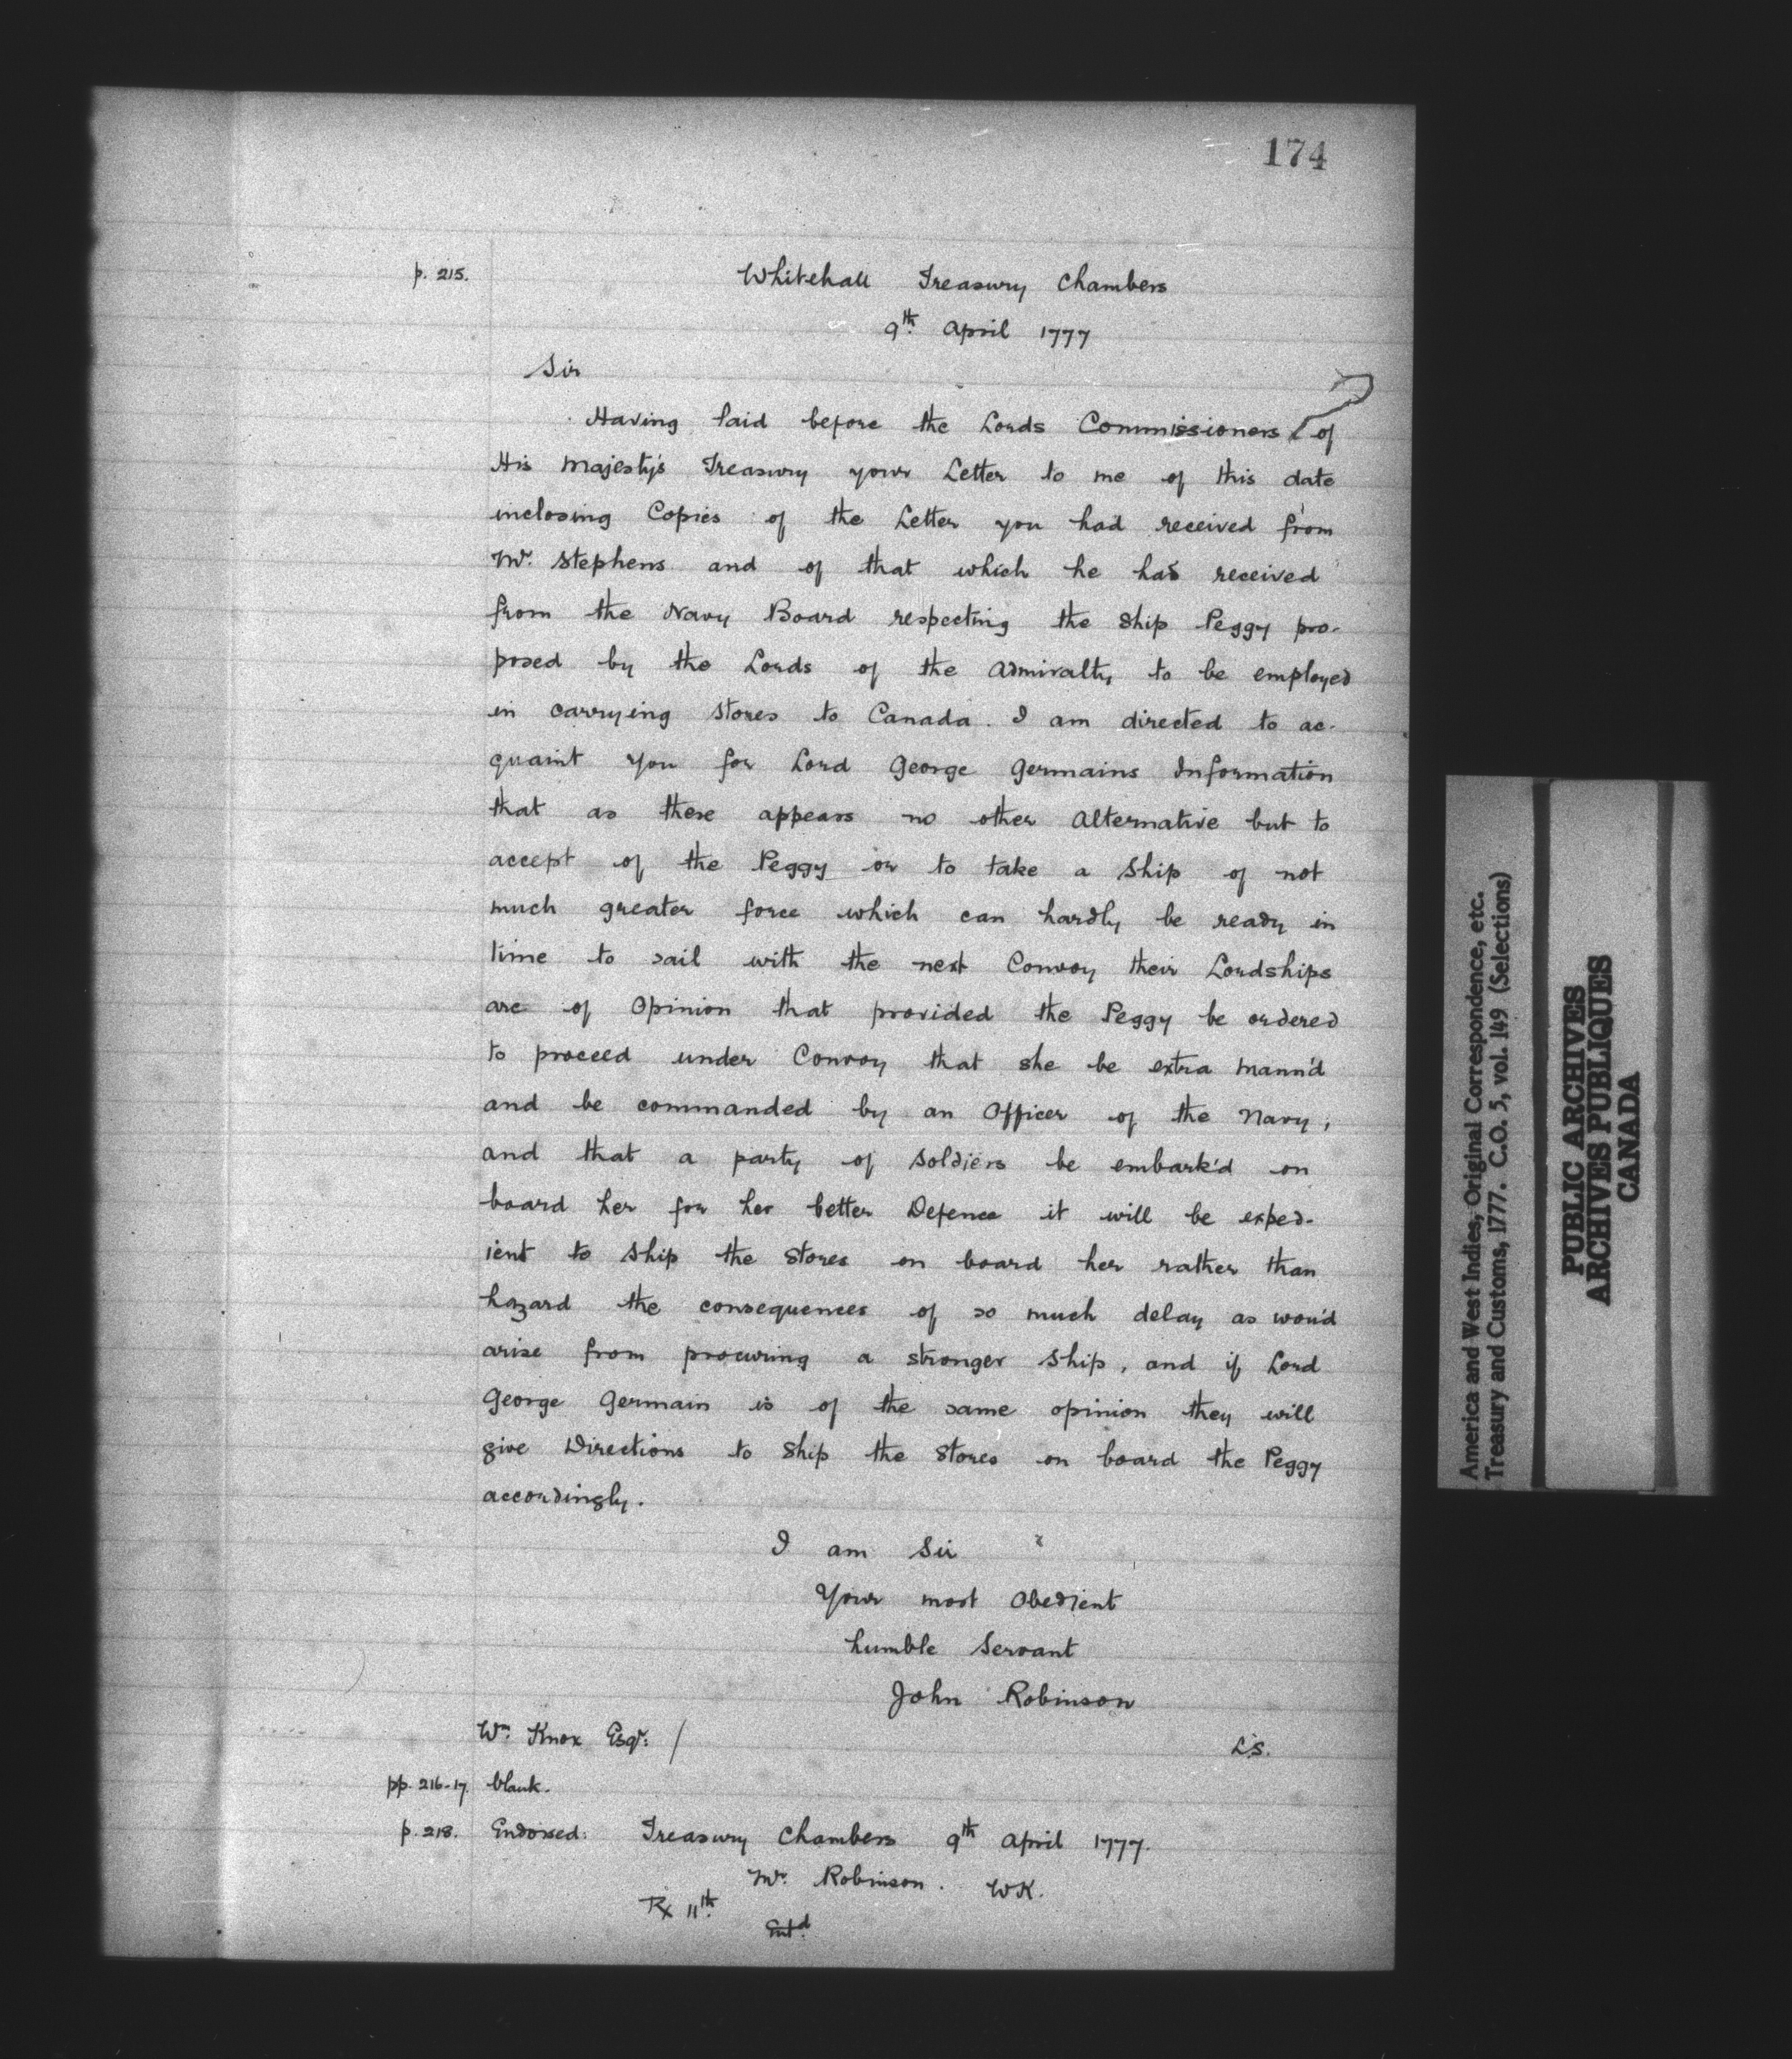 174
p. 215.
Whitehall Treasury Chambers
9th. April 1777
Sir
Having laid before the Lords Commissioners of
His Majesty's Treasury your Letter to me of this date
inclosing Copies of the Letter you had received from
Mr. Stephens and of that which he had received
from the Navy Board respecting the Ship Peggy pro-
posed by the Lords of the Admiralty to be employed
in carrying Stores to Canada. I am directed to ac-
quaint You for Lord George Germains Information
that as there appears no other Alternative but to
accept of the Peggy or to take a Ship of not
much greater force which can hardly be ready in
time to sail with the next Convoy their Lordships
are of Opinion that provided the Peggy be ordered
to proceed under Convoy that she be extra mann'd
and be commanded by an Officer of the Navy,
and that a party of Soldiers be embark'd on
board her for her better Defence it will be exped-
ient to Ship the Stores on board her rather than
hazard the consequences of so much delay as wou'd
arise from procuring a stronger Ship, and if Lord
George Germain is of the same opinion they will
give Directions to Ship the Stores on board the Peggy
accordingly.
I am Sir
Your most Obedient
humble Servant
John Robinson
Wm. Knox Esqr. /
L.S.
pp. 216-17. blank.
p. 218. Endorsed: Treasury Chambers 9th April 1777.
Mr. Robinson. WK.
Rx 11th.
Entd.
America and West Indies, Original Correspondence, etc.
Treasury and Customs, 1777. C.O. 5, vol. 149 (Selections)
PUBLIC ARCHIVES
ARCHIVES PUBLIQUES
CANADA